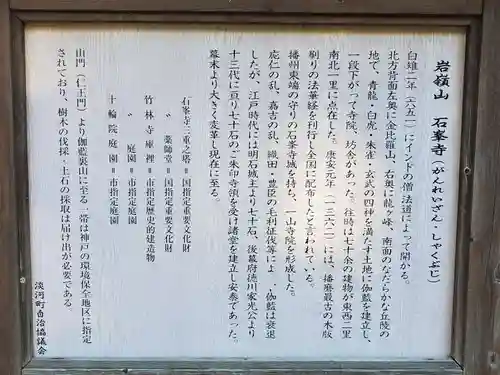 岩嶺山　石峯寺（がんれいざん・しゃくぶじ）
白雉二年（六五一）にインドの僧 法道によって開かる。
北方背面左奥に金比羅山、右奥に龍ヶ峰、南面のなだらかな丘陵の
地で、青龍・白虎・朱雀・玄武の四神を満たす土地に伽藍を建立し、
一段下がって寺院、坊舎があった。往時は七十余の建物が東西二里
南北一里に点在した。康安元年（一三六一）には、播磨最古の木版
刷りの法華経を刊行し全国に配布したと言われている。
播州東端の守りの石峯寺城を持ち、一山寺院を形成した。
応仁の乱、嘉吉の乱、織田・豊臣の毛利征伐等により、伽藍は衰退
したが、江戸時代には明石城主より七十石、後幕府徳川家光公より
十三代に亘り七十石のご朱印寺領を受け諸堂を建立し安泰であった。
幕末より大きく変革し現在に至る。
石峯寺三重之塔＝国指定重要文化財
〃　薬師堂＝国指定重要文化財
竹林寺庫裡＝市指定歴史的建造物
〃　庭園＝市指定庭園
十輪院庭園＝市指定庭園
山門（仁王門）より伽藍裏山に至る一帯は神戸の環境保全地区に指定
されており、樹木の伐採・土石の採取は届け出が必要である。
淡河町自治協議会